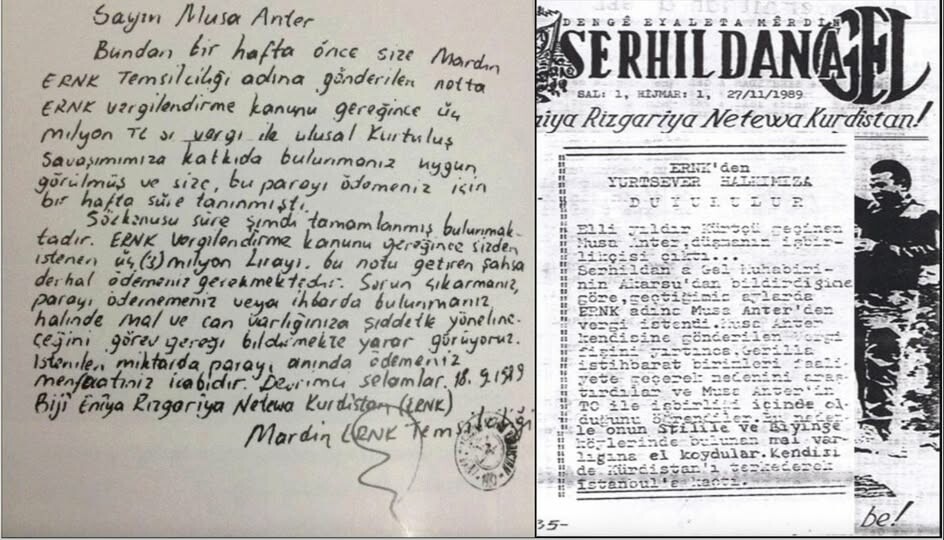 Sayın Musa Anter
Bundan bir hafta önce size Mardin
ERNK Temsilciliği adına gönderilen notta
ERNK vergilendirme kanunu gereğince üç
milyon TL sı vergi ile ulusal Kurtuluş
Savaşımımıza katkıda bulunmanız uygun
görülmüş ve size, bu parayı ödemeniz için
bir hafta süre tanınmıştı.
Sözkonusu süre şimdi tamamlanmış bulunmak-
tadır. ERNK vergilendirme kanunu gereğince sizden
istenen üç(3) milyon Lirayı, bu notu getiren şahsa
derhal ödemeniz gerekmektedir. Sorun çıkarmanız,
parayı ödememeniz veya ihbarda bulunmanız
halinde mal ve can varlığınıza şiddetle yöneline-
ceğini görev gereği bildirmekte yarar görüyoruz.
İstenilen miktarda parayı anında ödemeniz
menfaatiniz icabıdır. Devrimci selamlar. 18.9.1989
Biji Eniya Rızgariya Netewa Kurdistan (ERNK)
Mardin ERNK Temsilciliği
DENGÊ EYALETA MÊRDİN
SERHILDANA GEL
SAL: 1, HİJMAR: 1, 27/11/1989
niya Rizgariya Netewa Kurdistan!
ERNK'den
YURTSEVER HALKIMIZA
DUYURULUR
Elli yıldır Kürtçü geçinen
Musa Anter,düşmanın işbir-
likçisi çıktı...
Serhildan a Gel Muhabiri-
nin Akarsu'dan bildirdiğine
göre,geçtiğimiz aylarda
ERNK adına Musa Anter'den
vergi istendi.Musa Anter
kendisine gönderilen vergi
fişini yırtınca Gerilla
istihbarat birimleri faali-
yete geçerek nedenini araş-
tırdılar ve Musa Anter'in
TC ile işbirliği içinde ol-
duğunu
le onun Stilîlê ve
köylerinde bulunan mal var-
lığına el koydular.Kendisi
de Kürdistan'ı terkederek
İstanbul'a kaçtı.
35-
be!